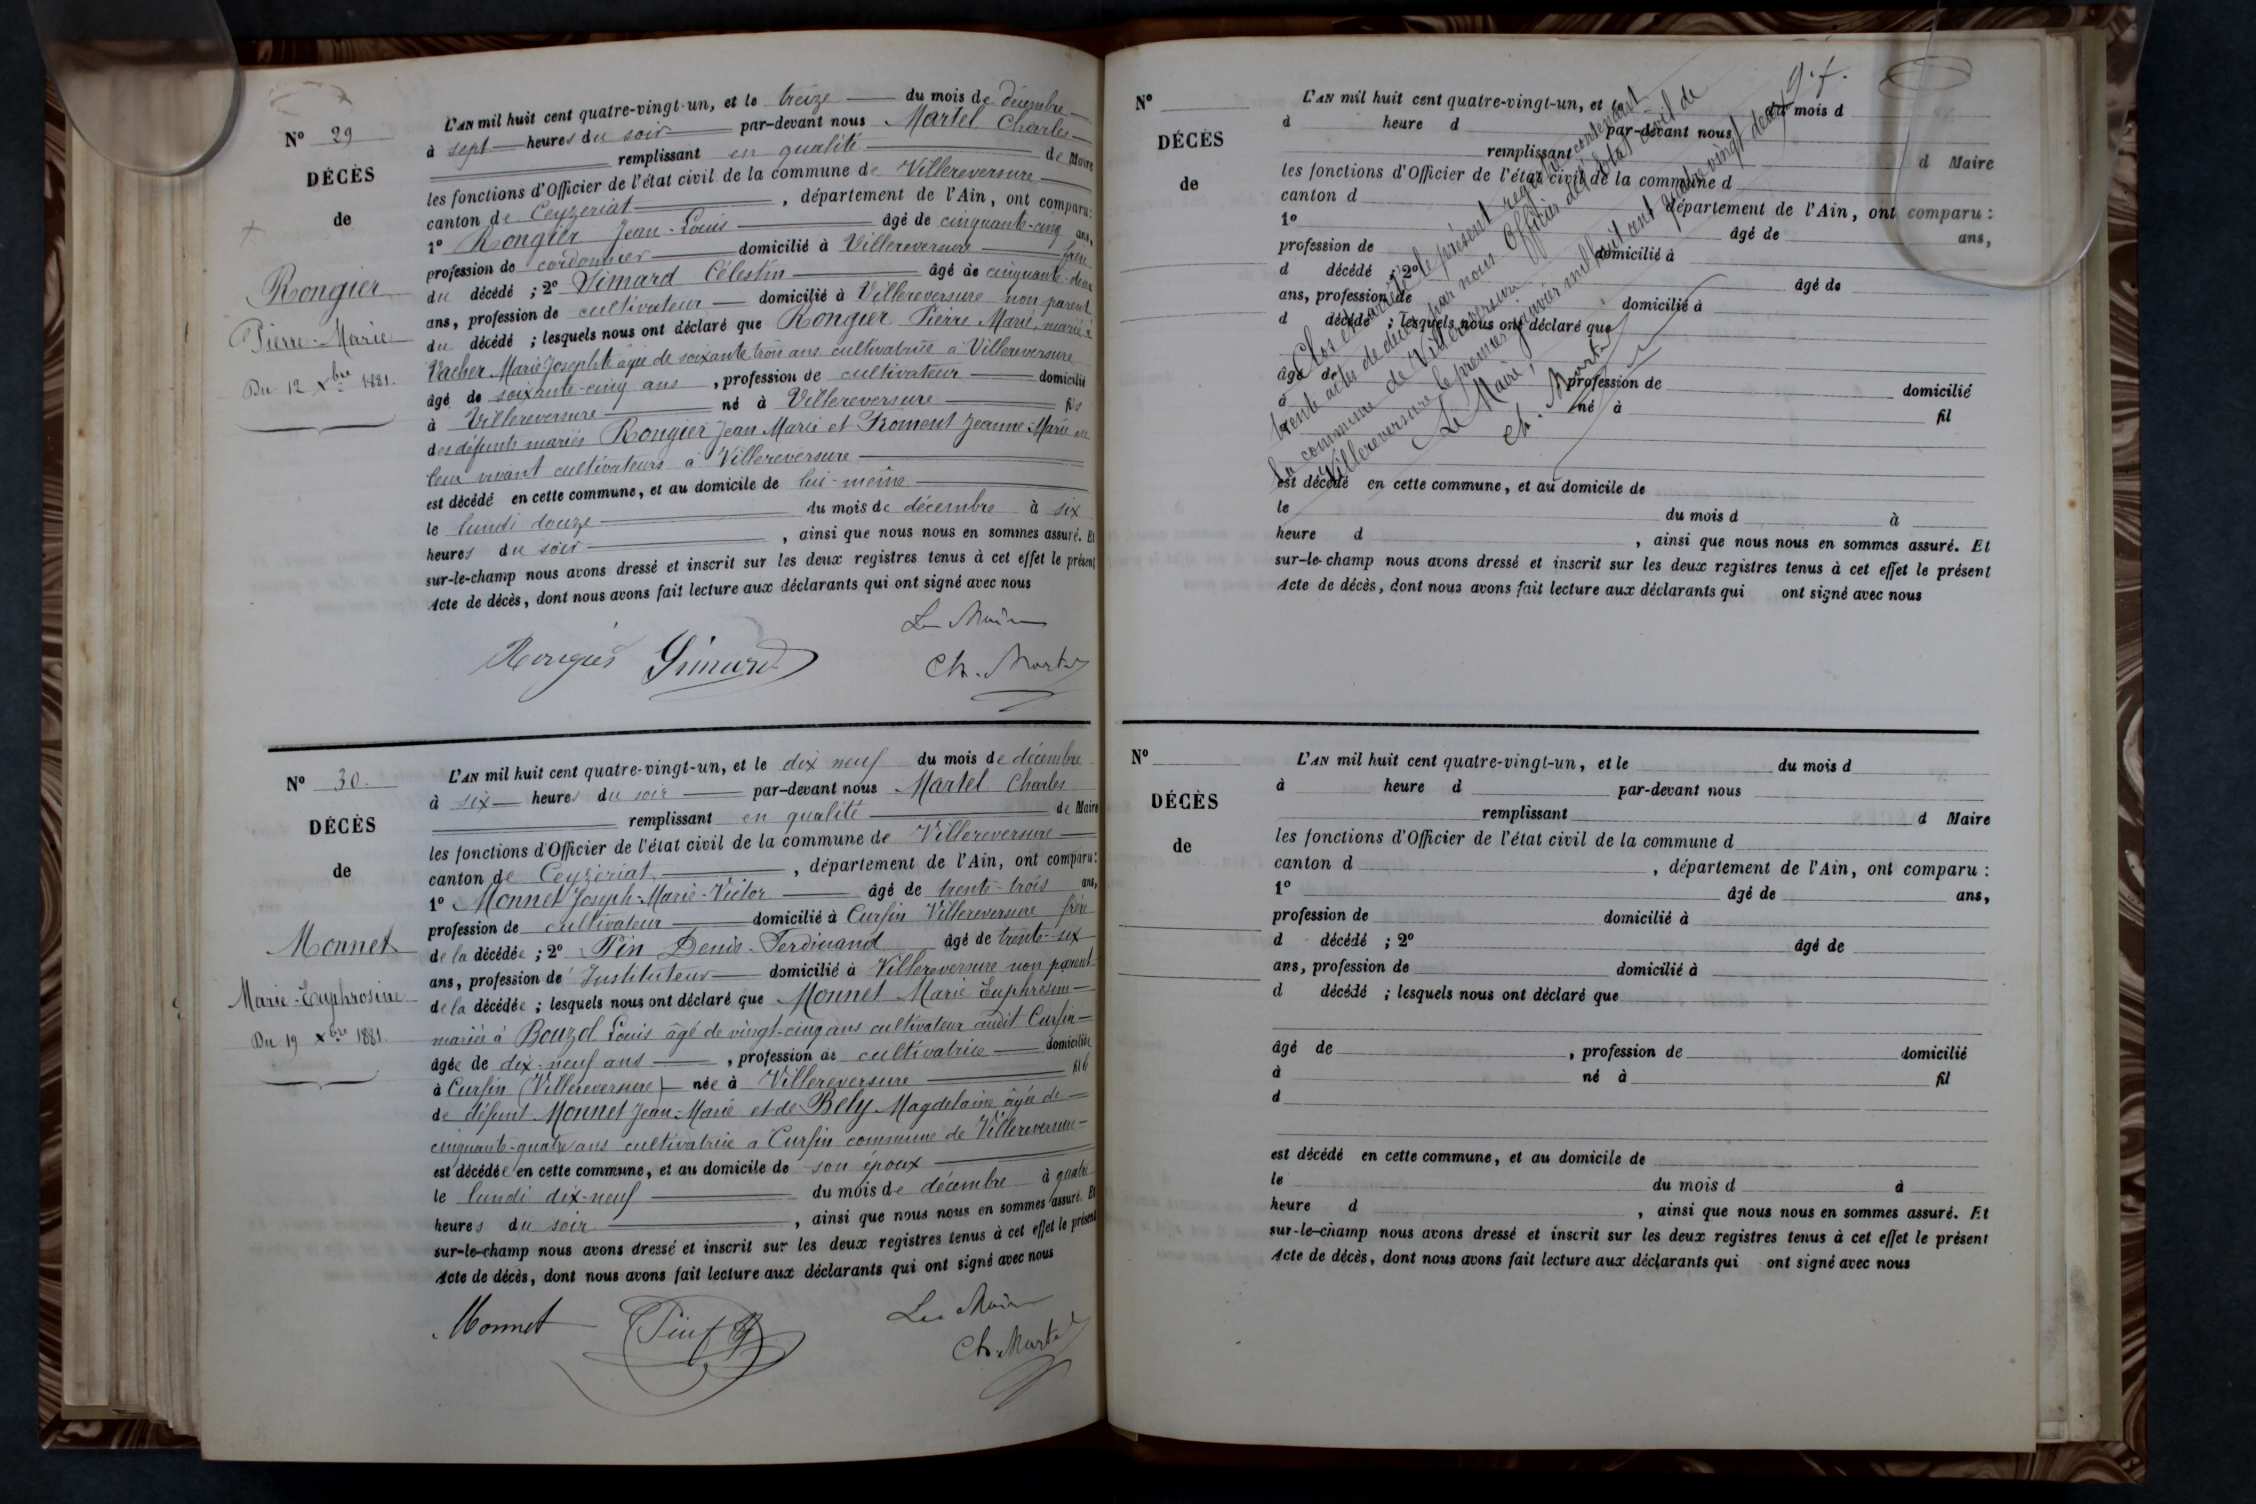 N° 29
DÉCÈS
de
Rongier
Pierre-Marie
Du 12 Xbre 1881.
L'AN mil huit cent quatre-vingt-un, et le treize du mois de décembre
à sept heures du soir par-devant nous Martel Charles
remplissant en qualité de Maire
les fonctions d'Officier de l'état civil de la commune de Villereversure
canton de Ceyzeriat, département de l'Ain, ont comparu:
1° Rongier Jean-Louis âgé de cinquante-cinq ans,
profession de cordonnier domicilié à Villereversure frère
du décédé ; 2° Simard Célestin âgé de cinquante-deux
ans, profession de cultivateur domicilié à Villereversure non parent
du décédé ; lesquels nous ont déclaré que Rongier Pierre Marie, marié à
Vacher Marie Josephte âgée de soixante trois ans cultivatrice à Villereversure
âgé de soixante-cinq ans, profession de cultivateur domicilié
à Villereversure né à Villereversure fils
des défunts mariés Rongier Jean Marie et Froment Jeanne-Marie en
leur vivant cultivateurs à Villereversure
est décédé en cette commune, et au domicile de lui-même
le lundi douze du mois de décembre à six
heures du soir, ainsi que nous nous en sommes assuré. Et
sur-le-champ nous avons dressé et inscrit sur les deux registres tenus à cet effet le présent
Acte de décès, dont nous avons fait lecture aux déclarants qui ont signé avec nous
Le Maire
Rongier Simard Ch. Martel
N° 30.
DÉCÈS
de
Monnet
Marie-Euphrosine
Du 19 Xbre 1881.
L'AN mil huit cent quatre-vingt-un, et le dix neuf du mois de décembre
à six heures du soir par-devant nous Martel Charles
remplissant en qualité de Maire
les fonctions d'Officier de l'état civil de la commune de Villereversure
canton de Ceyzeriat, département de l'Ain, ont comparu:
1° Monnet Joseph-Marie-Victor âgé de trente-trois ans,
profession de cultivateur domicilié à Curfin Villereversure frère
de la décédée ; 2° Pin Denis-Ferdinand âgé de trente-six
ans, profession de Instituteur domicilié à Villereversure non parent
de la décédée ; lesquels nous ont déclaré que Monnet Marie Euphrosine
mariée à Bouzol Louis âgé de vingt-cinq ans cultivateur audit Curfin
âgée de dix-neuf ans, profession de cultivatrice domiciliée
à Curfin (Villereversure) née à Villereversure fille
de défunt Monnet Jean-Marie et de Bely Magdelaine âgée de
cinquante-quatre ans cultivatrice à Curfin commune de Villereversure
est décédée en cette commune, et au domicile de son époux
le lundi dix-neuf du mois de décembre à quatre
heures du soir, ainsi que nous nous en sommes assuré. Et
sur-le-champ nous avons dressé et inscrit sur les deux registres tenus à cet effet le présent
Acte de décès, dont nous avons fait lecture aux déclarants qui ont signé avec nous
Le Maire
Monnet Pin Ch. Martel
N°
DÉCÈS
de
L'AN mil huit cent quatre-vingt-un, et le du mois d
à heure d par-devant nous
remplissant d Maire
les fonctions d'Officier de l'état civil de la commune d
canton d département de l'Ain, ont comparu :
1° âgé de ans,
profession de domicilié à
d décédé ; 2° âgé de
ans, profession de domicilié à
d décédé ; lesquels nous ont déclaré que
âgé de profession de domicilié
à né à fil
est décédé en cette commune, et au domicile de
le du mois d à
heure d , ainsi que nous nous en sommes assuré. Et
sur-le-champ nous avons dressé et inscrit sur les deux registres tenus à cet effet le présent
Acte de décès, dont nous avons fait lecture aux déclarants qui ont signé avec nous
Clos et arrêté le présent registre contenant
trente actes de décès par nous Officier de l'état civil de
la commune de Villereversure
Villereversure le premier janvier mil huit cent quatre vingt deux
Le Maire,
Ch. Martel
N°
DÉCÈS
de
L'AN mil huit cent quatre-vingt-un, et le du mois d
à heure d par-devant nous
remplissant d Maire
les fonctions d'Officier de l'état civil de la commune d
canton d , département de l'Ain, ont comparu :
1° âgé de ans,
profession de domicilié à
d décédé ; 2° âgé de
ans, profession de domicilié à
d décédé ; lesquels nous ont déclaré que
âgé de , profession de domicilié
à né à fil
d
est décédé en cette commune, et au domicile de
le du mois d à
heure d , ainsi que nous nous en sommes assuré. Et
sur-le-champ nous avons dressé et inscrit sur les deux registres tenus à cet effet le présent
Acte de décès, dont nous avons fait lecture aux déclarants qui ont signé avec nous